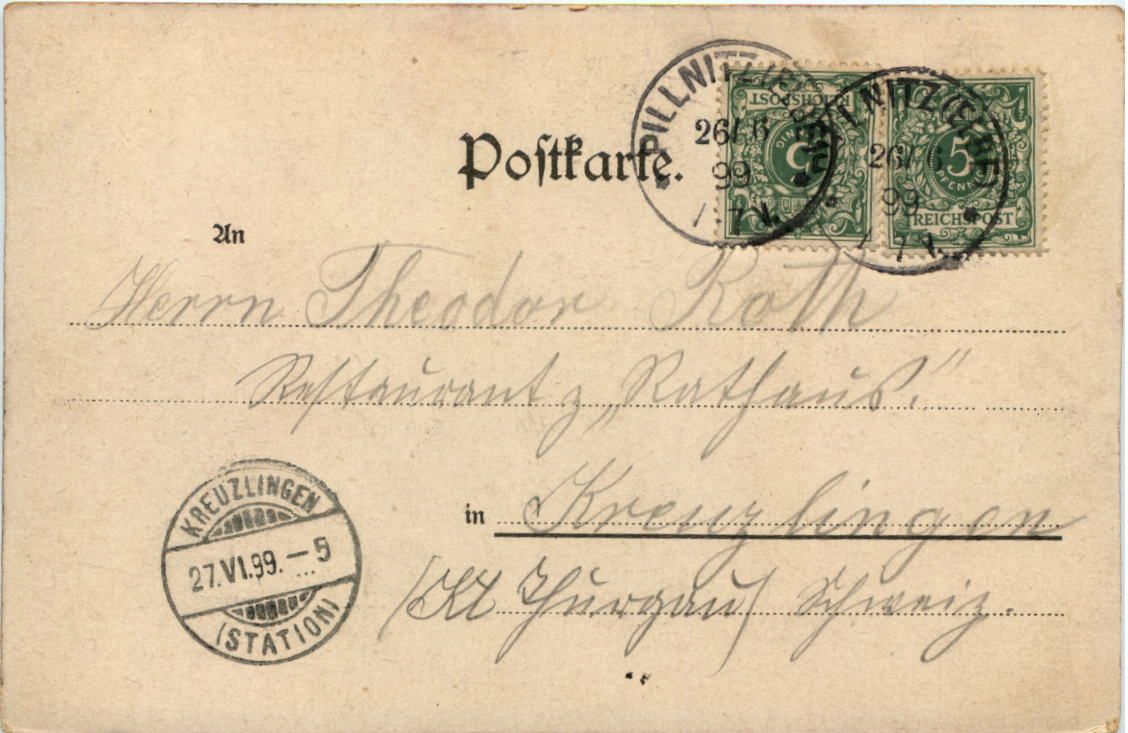 Postkarte.
PILLNITZ (ELBE)
26/6
99
REICHSPOST
5
PILLNITZ (ELBE)
26/6
99
5
PFENNIG
REICHSPOST
An
Herrn Theodor Roth
Restaurant z. „Rathaus."
in Kreuzlingen
(Kt Thurgau) Schweiz.
KREUZLINGEN
27.VI.99.—5
(STATION)